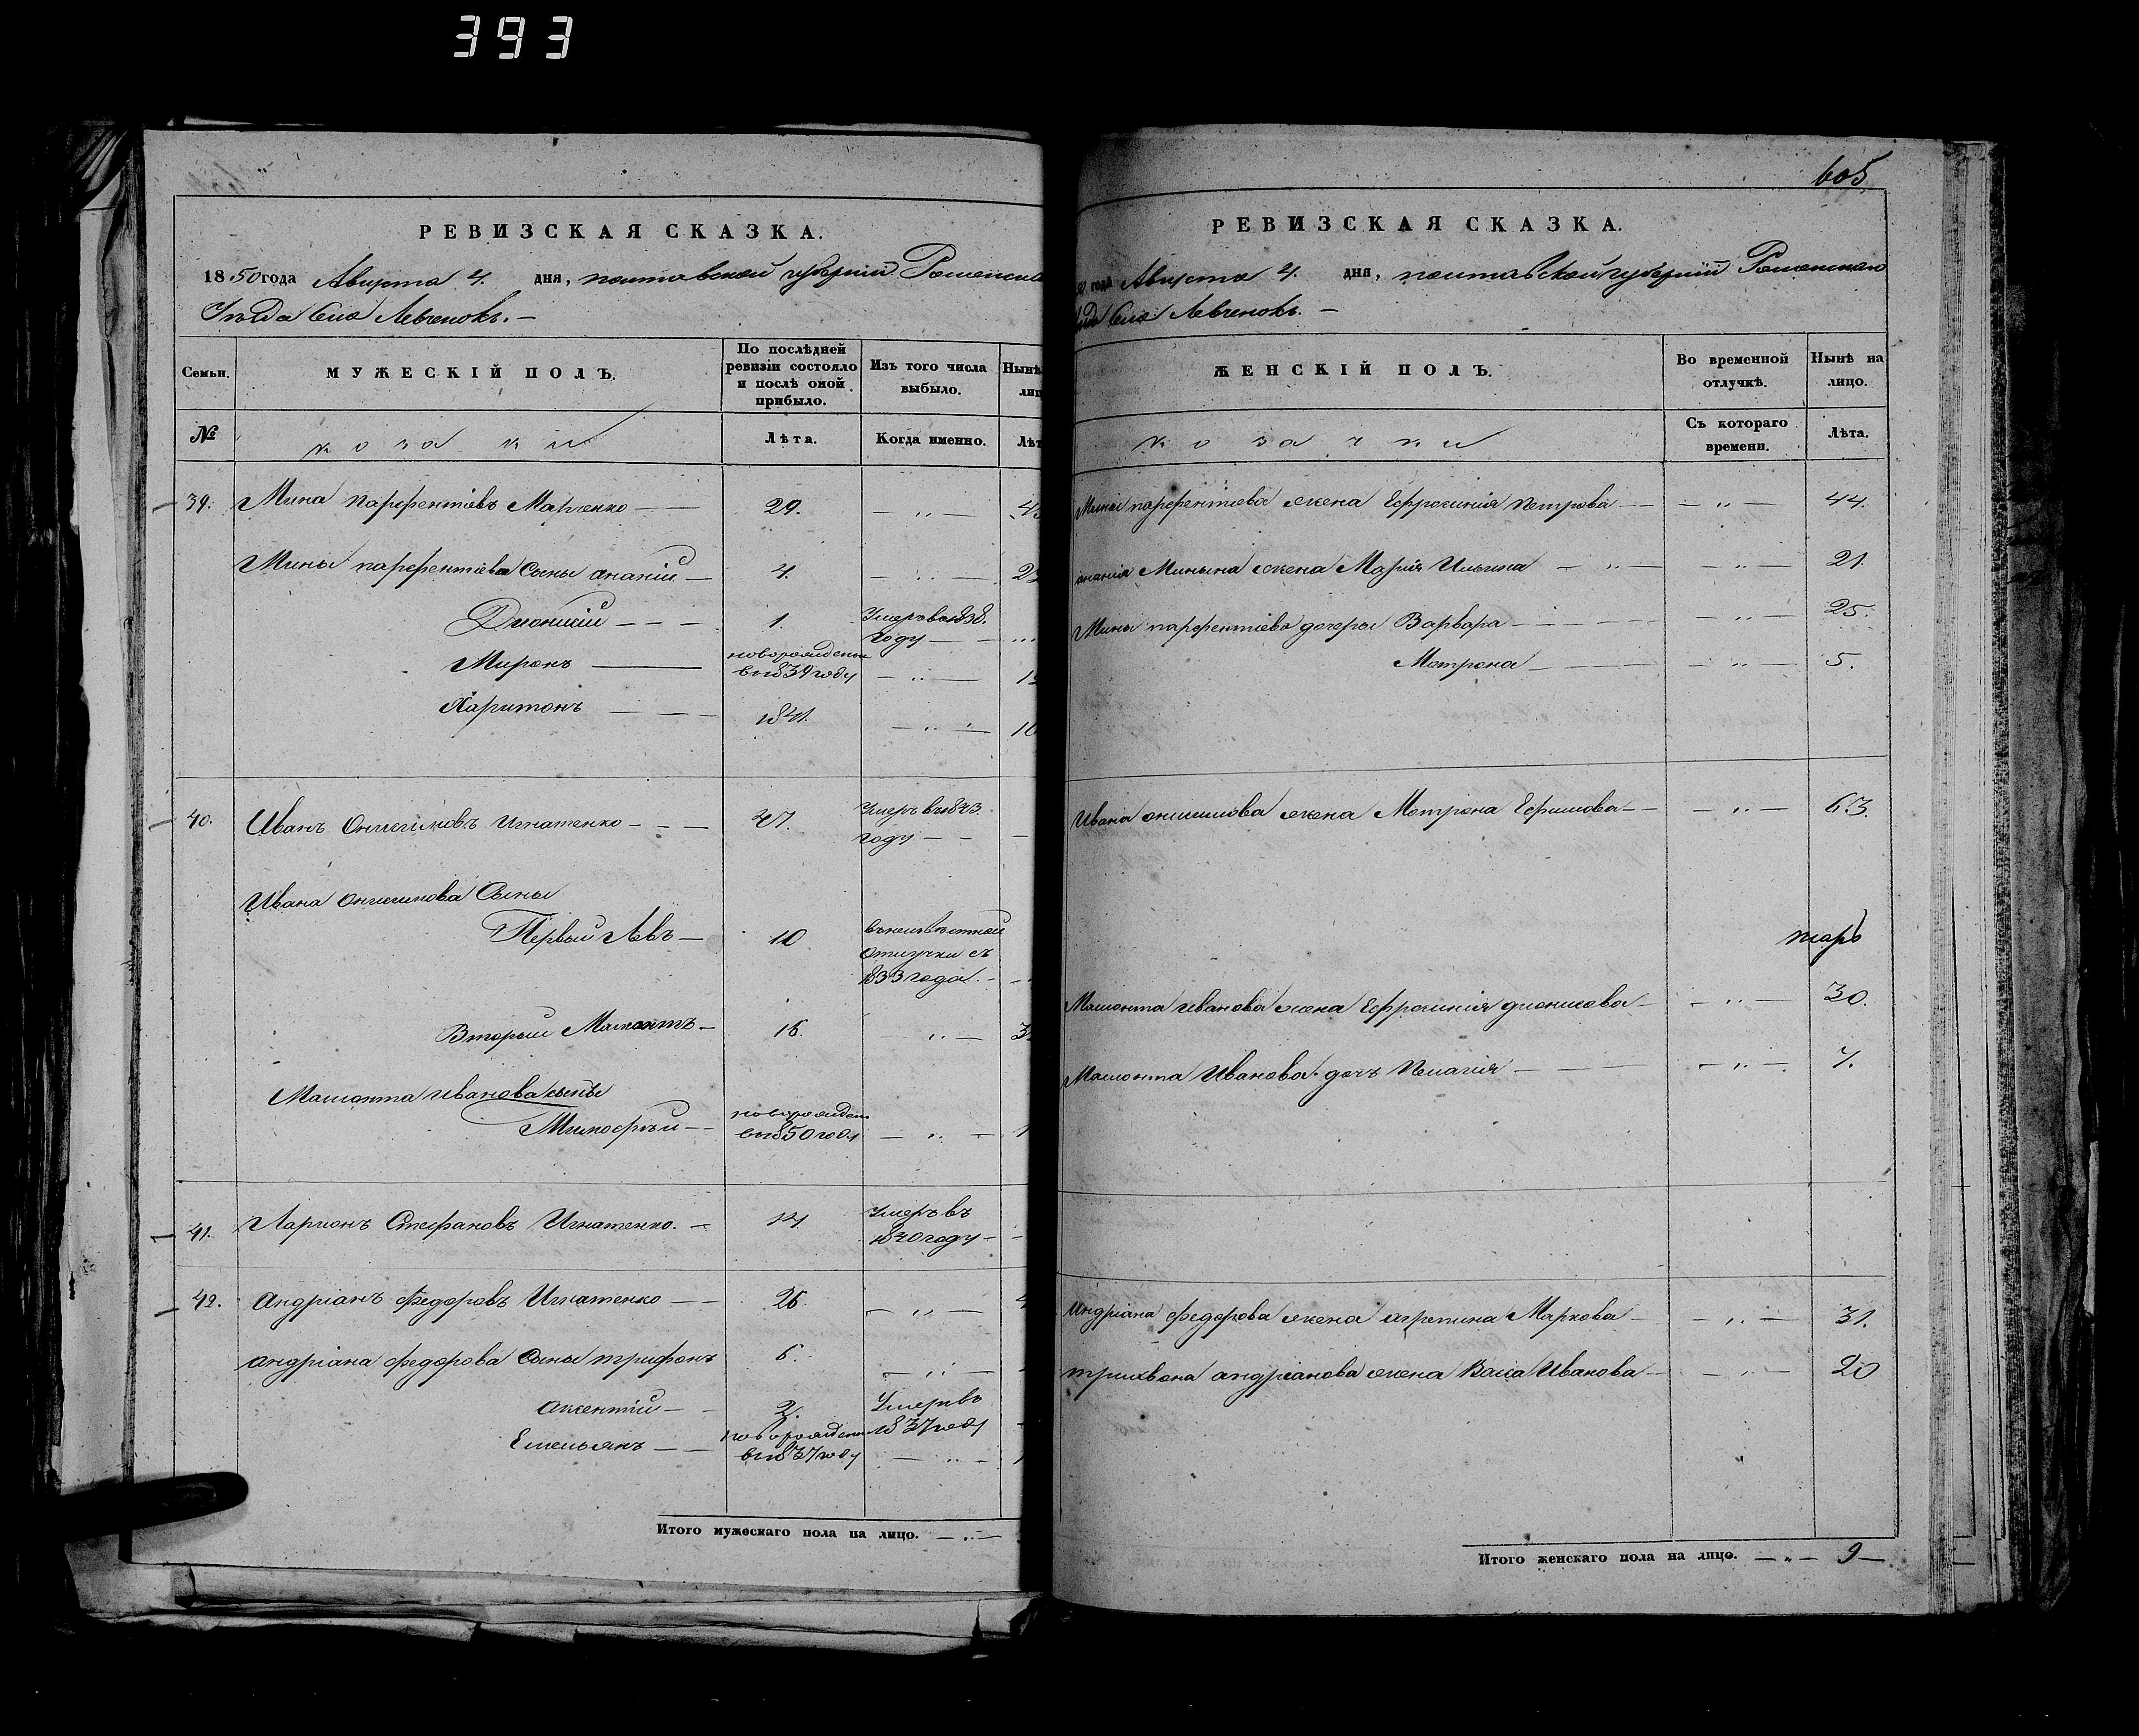 393
РЕВИЗСКАЯ СКАЗКА.
1850 года Августа 4. дня, полтавской губернии Роменска
Уезда Села Левченокъ. –
Семьи.
МУЖЕСКІЙ ПОЛЪ.
По послѣдней
ревизіи состояло
и послѣ оной
прибыло.
Изъ того числа
выбыло.
Нынѣ
лиц
№
козаки
Лѣта.
Когда именно.
Лѣт
39. Мина парфентіевъ Марченко 29. — „ —
Мины парфентіева Сыны ананій 4. — „ —
Дионисій 1. Умеръ въ 1838. году
Миронъ новорожденъ въ 1839 году — „ —
Харитонъ 1841. — „ — 10
40. Иванъ Онисимовъ Игнатенко 47. Умеръ въ 1843. году
Ивана Онисимова Сыны
Первый Левъ 10 въ неизвѣстной отлучки съ 1833 года. -
Вторый Мамонтъ 16. „ —
Мамонта иванова сынъ
Тимофѣй новорожден въ 1850 году — „ — 1
41. Ларионъ Стефановъ Игнатенко. 14. Умеръ въ 1840 году -
42. Андріанъ Федоровъ Игнатенко 26. — „ —
андріана федорова Сыны трифонъ 6. — „ —
Аксентій 2. Умеръ въ 1837 году
Емельянъ новорожден въ 1837 году — „ —
Итого мужескаго пола на лицо. — „ —
605
РЕВИЗСКАЯ СКАЗКА.
50 года Августа 4. дня, полтавской губерніи Роменскаго
Села Левченокъ. –
ЖЕНСКІЙ ПОЛЪ.
Во временной
отлучкѣ.
Нынѣ на
лицо.
козачки
Съ котораго
времени.
Лѣта.
Мины парфентіева жена Ефросинія Петрова — „ — 44.
анания Минына жена Марія Ильина — „ — 21.
Мины парфентіева дочеры Варвара — „ — 25.
Мотрона — „ — 5.
Ивана онисимова жена Мотрона Ефимова — „ — 63.
Мамонта иванова жена Ефросинія дионисова — „ — 30.
Мамонта Иванова дочъ Пелагія — „ — 7.
Андріана федорова жена агрепина Маркова — „ — 31.
трихвона андріанова жена Васса Иванова — „ — 20
Итого женскаго пола на лицо. — „ — 9 —